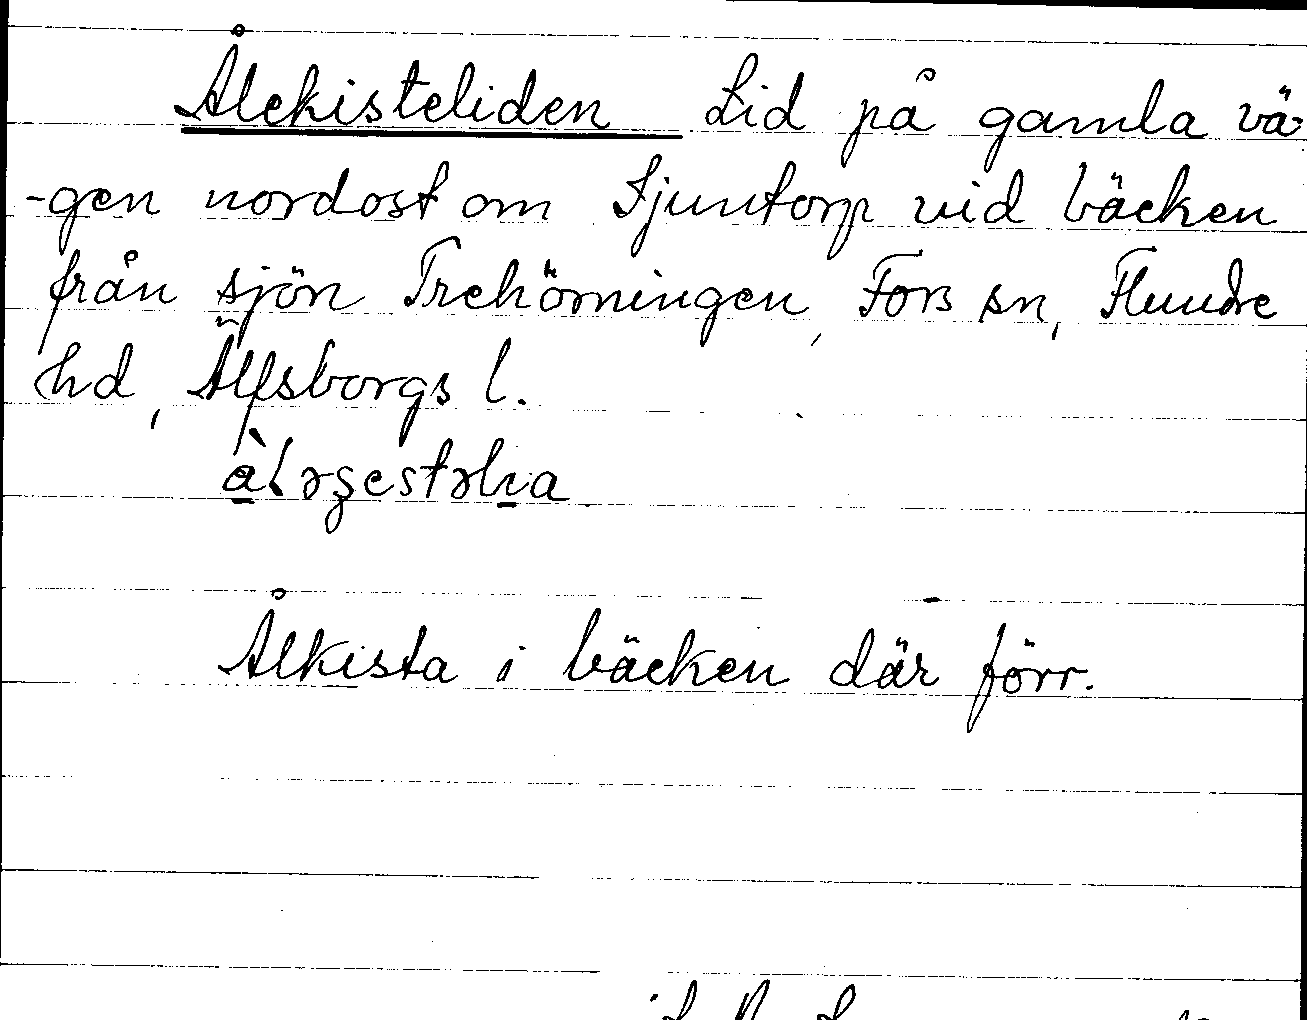 Ålekisteliden Lid på gamla vä-
-gen nordost om Sjuntorp vid bäcken
från sjön Trehörningen, Fors sn, Flundre
hd, Älfsborgs l.
Ålkista i bäcken där förr.